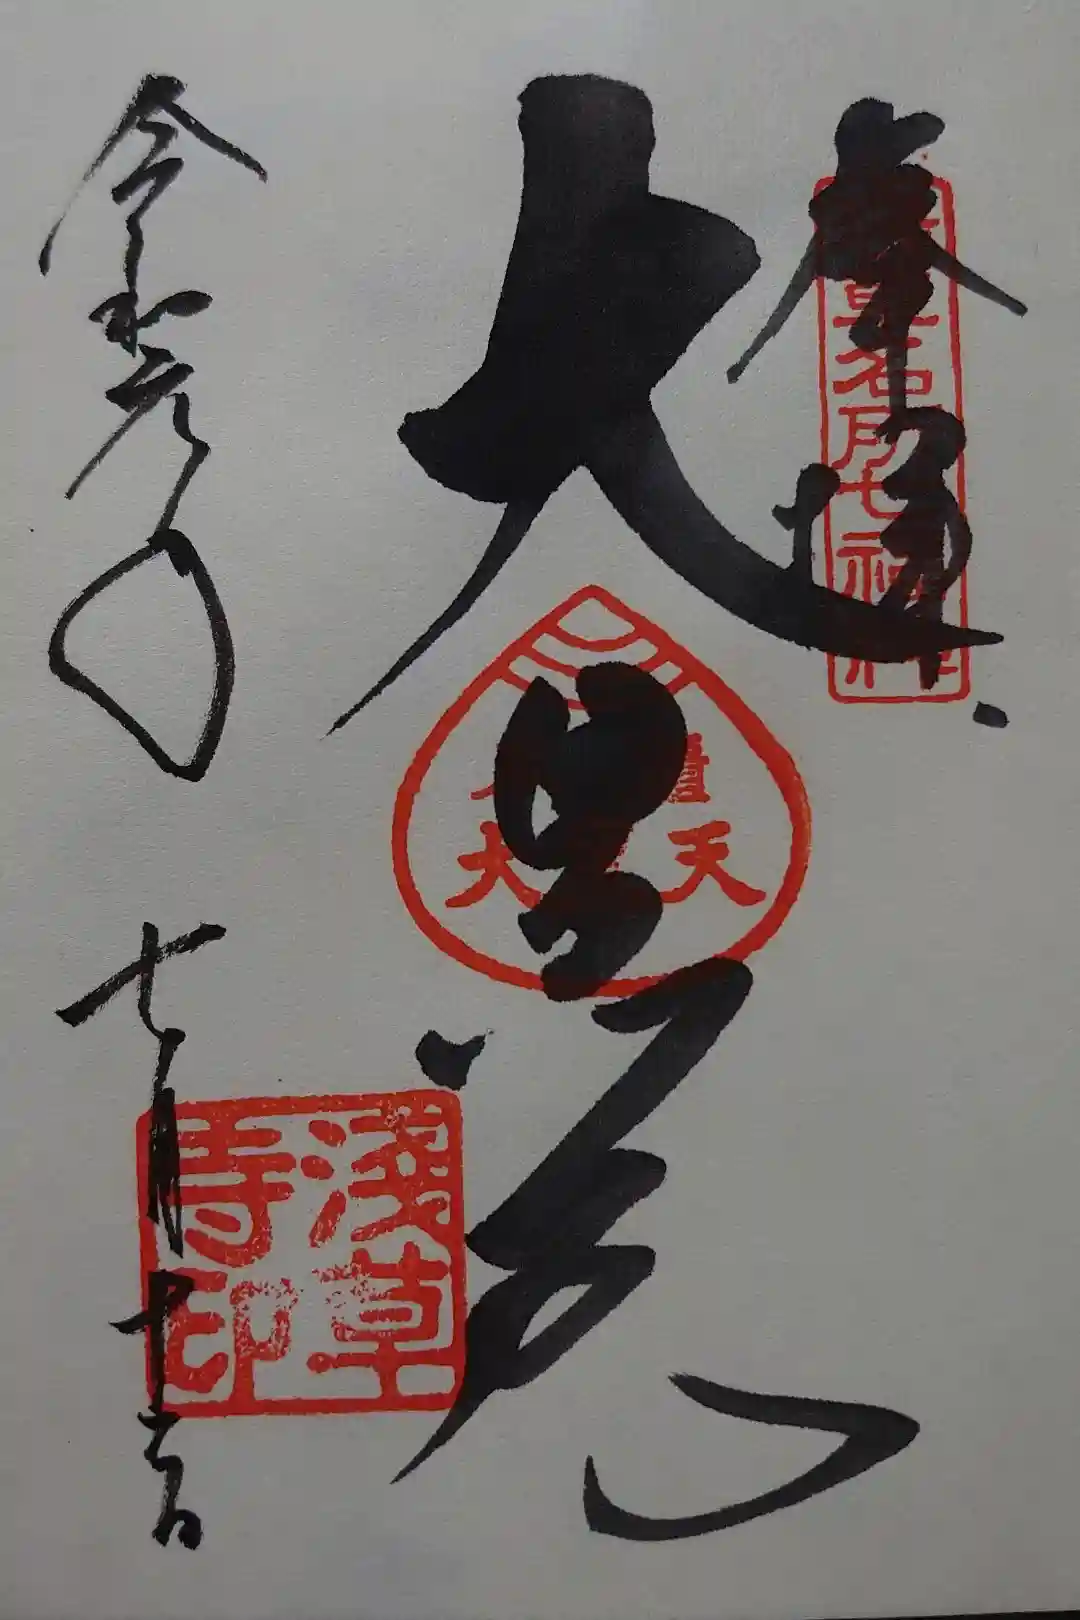 奉拝
草名所七福神
大黒天
大 天
令和元年
七月十日
淺草
寺印